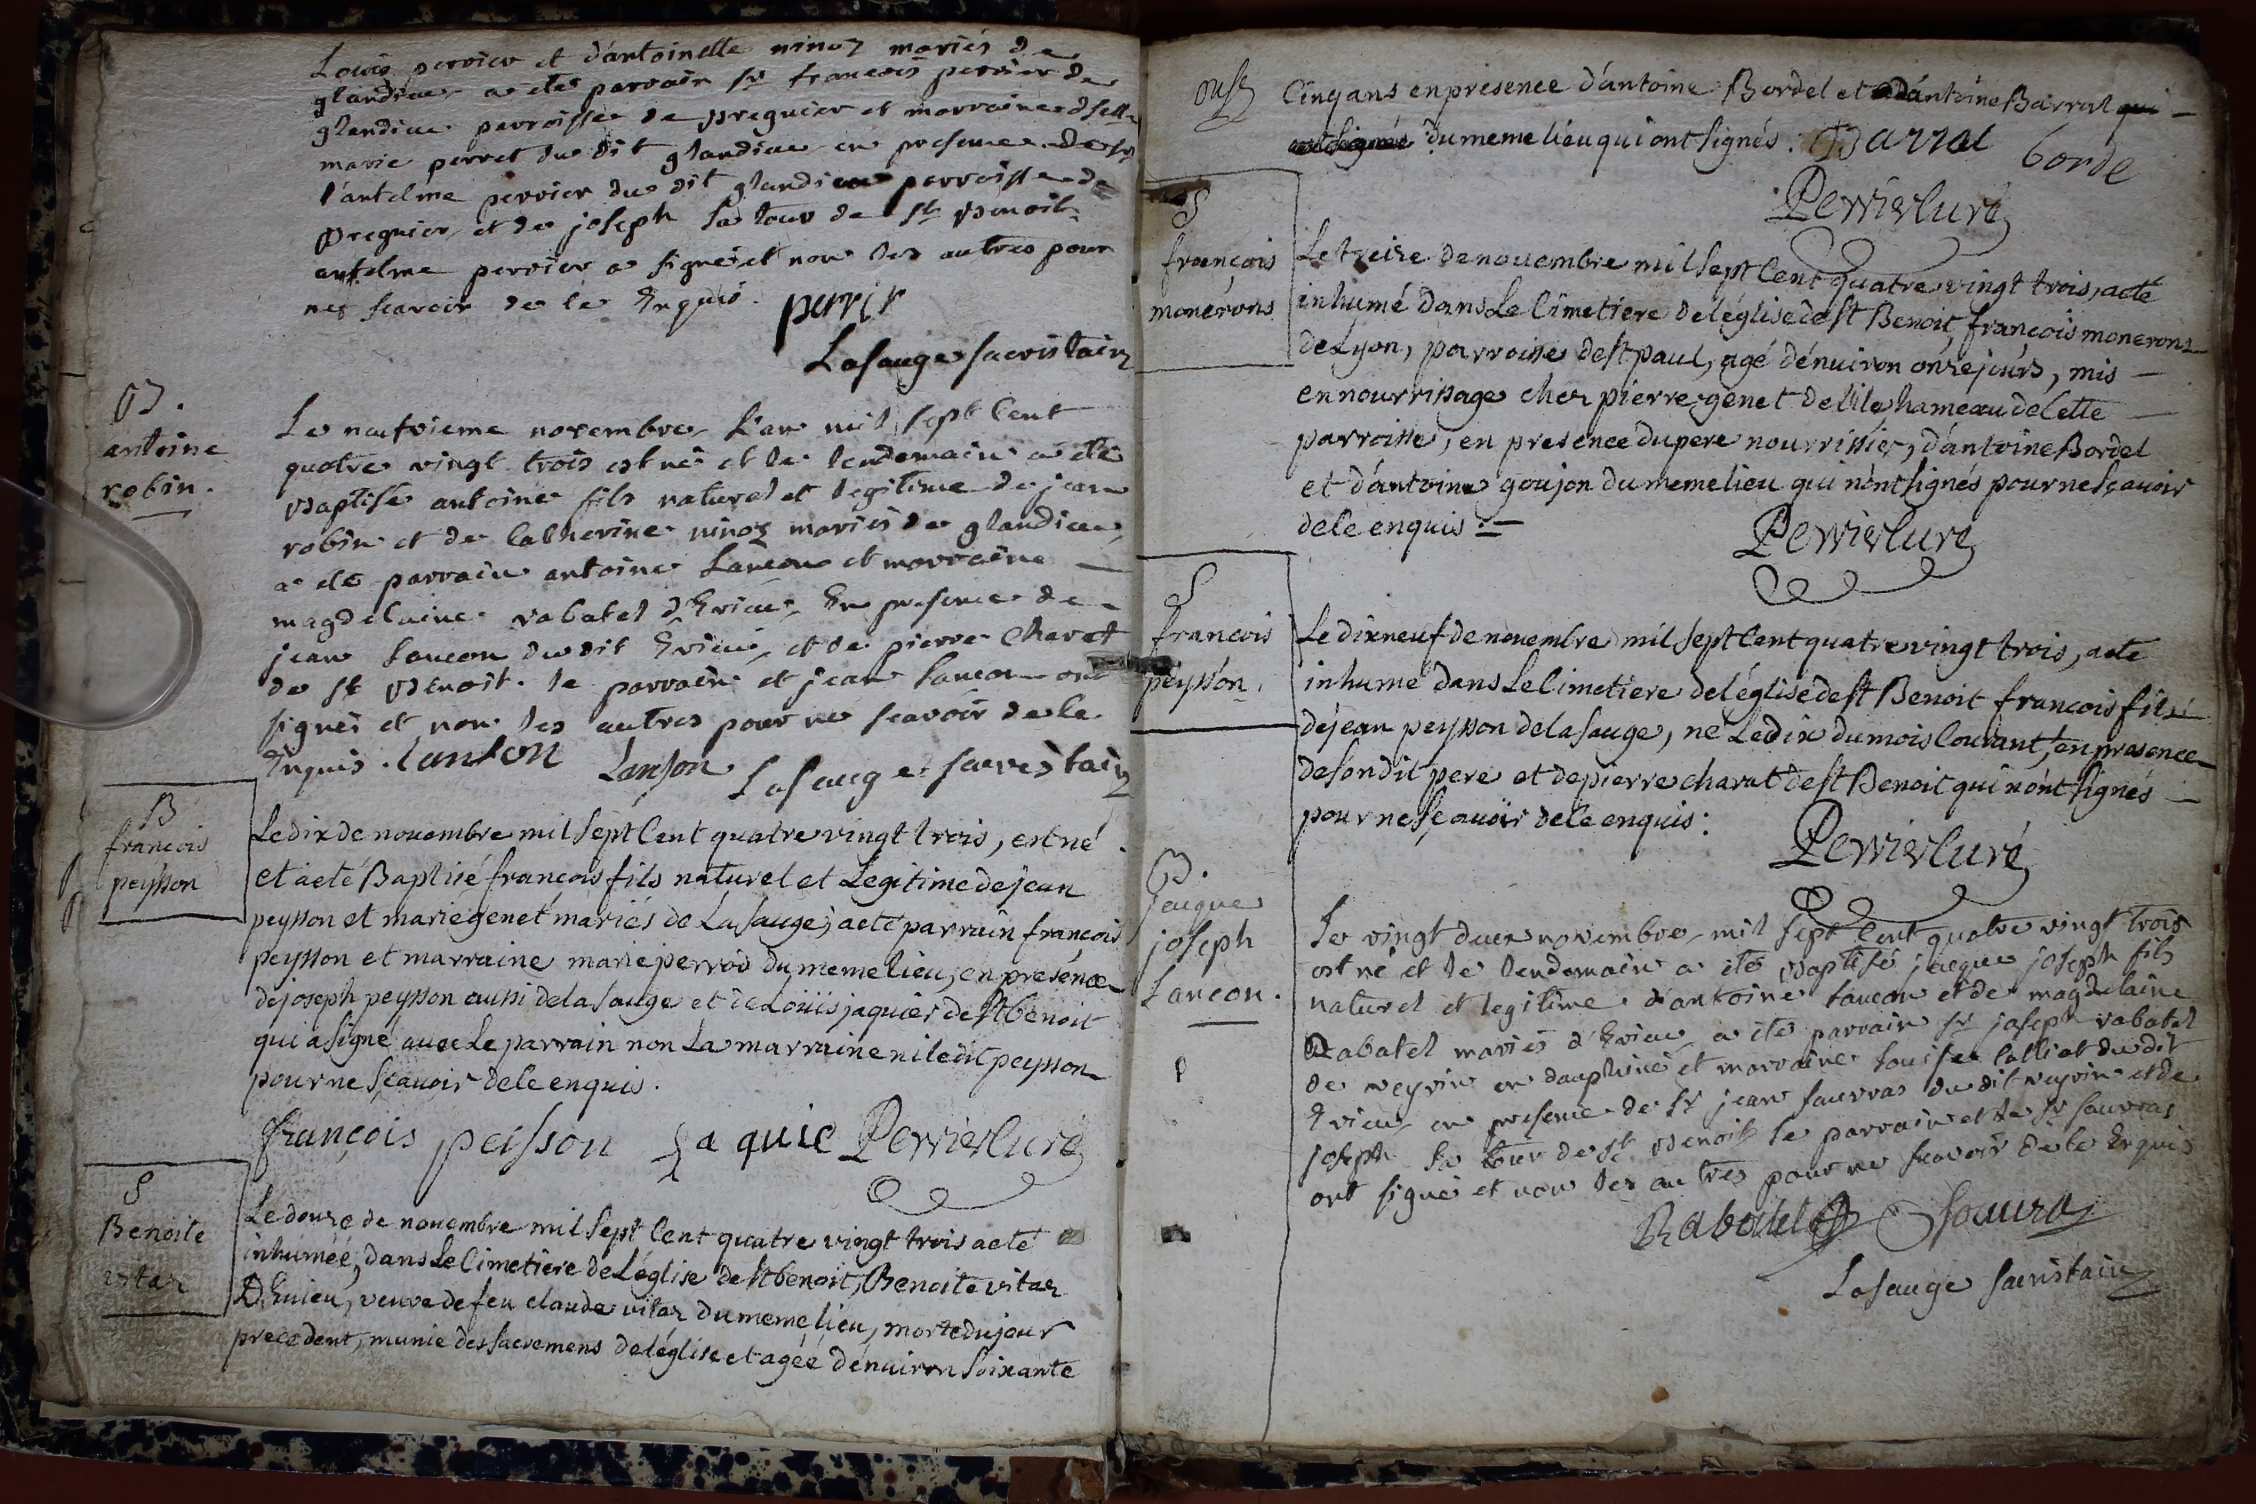 Louis perrier et d'antoinette ninoz mariés de
glandieu a eté parrain sr françois perrier de
glandieu parroisse de pregnier et marraine dselle
marie perret du dit glandieu en presence de sr
l'antelme perrier du dit glandieu parroisse de
pregnier et de joseph la tour de st Benoit
antelme perrier a signé et non les autres pour
ne scavoir de ce Enquis. perrier
Lasauge sacristain
B.
antoine
robin.
Le neufvieme novembre L'an mil sept Cent
quatre vingt trois est né et le lendemain a eté
Baptisé antoine fils naturel et legitime de jean
robin et de Catherine ninoz mariés de glandieu
a eté parrain antoine Lancon et marraine
magdelaine rabatel d'Evieu, En presence de
jean Lancon du dit Evieu, et de pierre Charvet
de st Benoit. le parrain et jean Lancon ont
signés et non les autres pour ne scavoir de ce
Enquis. Lanson Lanson Lasauge sacristain
B
francois
peysson
Le dix de nouembre mil sept Cent quatre vingt trois, est né
et a eté Baptisé françois fils naturel et Legitime de jean
peysson et marie genet mariés de La sauge; a eté parrain françois
peysson et marraine marie perrod du meme lieu, en presence
de joseph peysson aussi de la sauge et de Loüis jaquier de st benoit
qui a signé avec Le parrain non La marraine ni le dit peysson
pour ne sçavoir de ce enquis.
françois peisson Jaquie Perrier Curé
S
Benoite
vitaz
Le douze de nouembre mil sept Cent quatre vingt trois a eté
inhumée, dans Le Cimetiere de L'église de st benoit, Benoite vitaz
D'Euieu, veuve de feu claude vitaz du meme lieu, morte du jour
precedent, munie des sacremens de l'église et agée d'enuiron soixante
Cinq ans en presence d'antoine Bordel et d'antoine Barral qui
ont signés du meme lieu qui ont signés. Barral bordel
Perrier Curé
S
françois
monerons
Le treize de nouembre mil sept Cent quatre vingt trois, a eté
inhumé dans Le Cimetiere de l'église de st Benoit, françois monerons
de Lyon, parroisse de st paul, agé d'enuiron onze jours, mis
en nourrissage chez pierre genet de l'ile hameau de cette
parroisse, en presence du pere nourrissier, d'antoine Bordel
et d'antoine goujon du meme lieu qui n'ont signés pour ne sçavoir
de ce enquis.
Perrier Curé
S
francois
peysson.
Le dix neuf de nouembre mil sept Cent quatre vingt trois, a eté
inhumé dans Le Cimetiere de l'église de st Benoit françois fils
de jean peysson de la sauge, né Le dix du mois Courant, en presence
de son dit pere et de pierre charvet de st Benoit qui n'ont signés
pour ne sçavoir de ce enquis:
Perrier Curé
B.
jacque
joseph
Lancon.
Le vingt deux novembre mil sept Cent quatre vingt trois
est né et le lendemain a eté Baptisé jacque joseph fils
naturel et legitime d'antoine Lancon et de magdelaine
Rabatel mariés d'Evieu a eté parrain sr joseph rabatel
de veyrin en dauphiné et marraine Louise du dit
Evieu, en presence de sr jean sauvras du dit veyrin et de
joseph la tour de st Benoit le parrain et le sr sauvras
ont signés et non les autres pour ne scavoir de ce Enquis
Rabatel
Lasauge sacristain